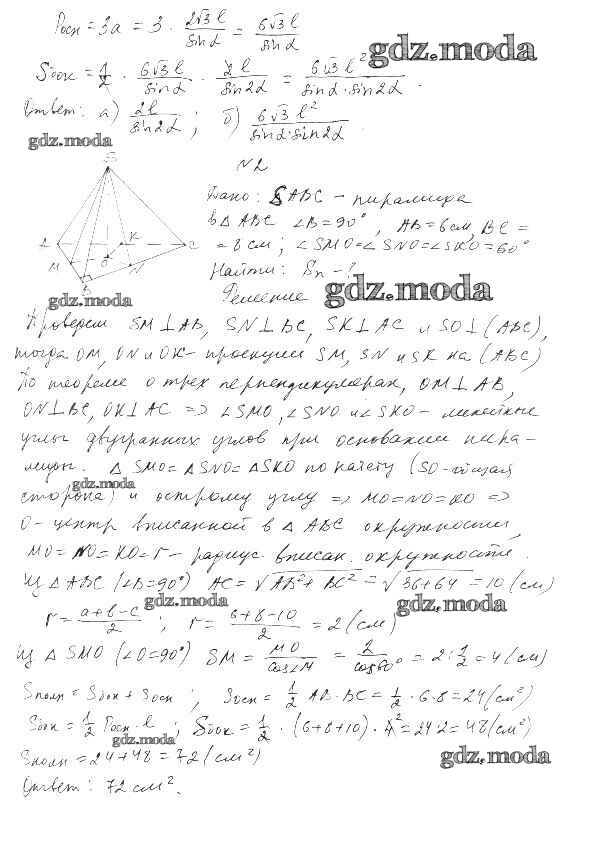 Pосн = 3a = 3 · 2√3 l / sin α = 6√3 l / sin α
gdz.moda
Sбок = 1/2 · 6√3 l / sin α · 2l / sin 2α = 6√3 l² / sin α · sin 2α .
Ответ: а) 2l / sin 2α ; б) 6√3 l² / sin α · sin 2α .
gdz.moda
N2
S
A
K
C
M
O
N
B
Дано: SABC – пирамида
в △ ABC ∠B = 90°, AB = 6 см, BC =
= 8 см; ∠SMO = ∠SNO = ∠SKO = 60°
Найти: Sп – ?
gdz.moda
Решение
gdz.moda
Проведем SM ⊥ AB, SN ⊥ BC, SK ⊥ AC и SO ⊥ (ABC),
тогда OM, ON и OK – проекции SM, SN и SK на (ABC)
По теореме о трех перпендикулярах, OM ⊥ AB,
ON ⊥ BC, OK ⊥ AC => ∠SMO, ∠SNO и ∠SKO – линейные
углы двугранных углов при основании пира–
миды. △ SMO = △SNO = △SKO по катету (SO – общая
gdz.moda
сторона) и острому углу => MO = NO = KO =>
O – центр вписанной в △ ABC окружности,
MO = NO = KO = r – радиус вписан. окружности.
Из △ ABC (∠B = 90°) AC = √AB² + BC² = √36+64 = 10 (см)
gdz.moda
gdz.moda
r = a+b-c / 2 ; r = 6+8-10 / 2 = 2 (см)
Из △ SMO (∠O = 90°) SM = MO / cos∠M = 2 / cos 60° = 2 : 1/2 = 4 (см)
Sполн = Sбок + Sосн ; Sосн = 1/2 AB · BC = 1/2 · 6 · 8 = 24 (см²)
Sбок = 1/2 Pосн · l ; Sбок = 1/2 · (6+8+10) · 4 = 24 · 2 = 48 (см²)
gdz.moda
Sполн = 24 + 48 = 72 (см²)
gdz.moda
Ответ: 72 см².